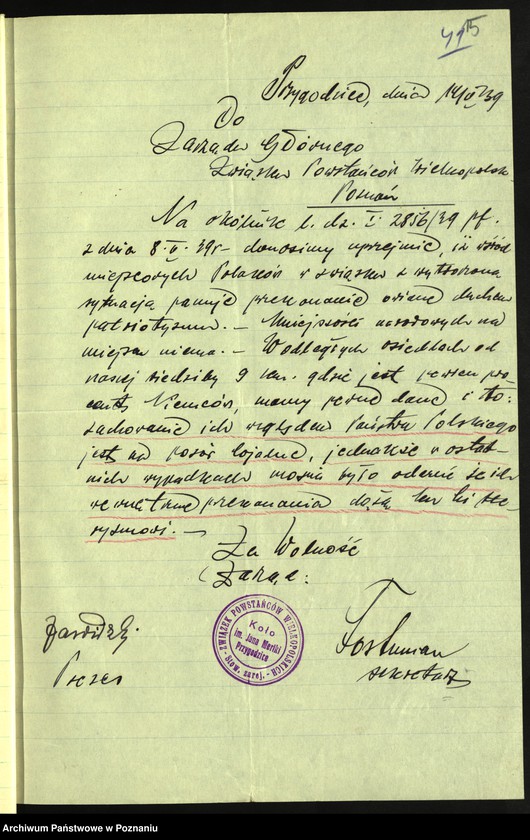 415
Przygodzice, dnia 14/V 39
Do
Zarządu Głównego
Związku Powstańców Wielkopolsk.
Poznań
Na okólnik l. dz. I. 2856/39 pf.
z dnia 8.V. 39r donosimy uprzejmie, iż wśród
miejscowych Polaków w związku z wytworzoną
sytuacją panuje przekonanie owiane duchem
patriotyzmu. — Mniejszości narodowych na
miejscu niema. — W odległych osiedlach od
naszej siedziby 9 km. gdzie jest pewien pro-
cent Niemców, mamy pewne dane i to:
zachowanie ich względem Państwa Polskiego
jest na pozór lojalne, jednakże w ostat-
nich wypadkach można było odczuć że ich
wewnętrzne przekonania dążą ku hitle-
ryzmowi. —
Za Wolność
Zarząd:
Prezes
ZWIĄZEK POWSTAŃCÓW WIELKOPOLSKICH
Koło
im. Jana Mertki
Przygodzice
Stow. zarej.
Fortuniak
sekretarz
Archiwum Państwowe w Poznaniu